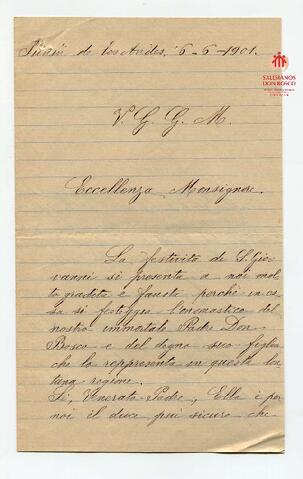 de los Andes, 6-6-1901.
SALESIANOS
DON BOSCO
V. G. G. M.
Eccellenza Monsignore,
La festività di S. Gio-
vanni si presenta a noi mol-
to gradita e fausta perchè in es-
sa si festeggia l'onomastico del
nostro immortale Padre Don
Bosco e del degno suo figlio
che lo rappresenta in questa lon-
tana regione.
Sì, Venerato Padre, Ella è per
noi il duce più sicuro che